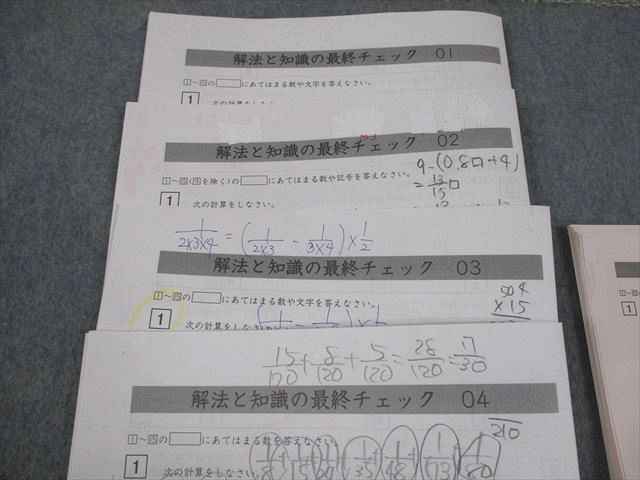 解法と知識の最終チェック 01
1～四の□にあてはまる数や文字を答えなさい。
1 次の計算をしなさい
解法と知識の最終チェック 02
9-(0.8□+4)
=13/15□
の□にあてはまる数や記号を答えなさい。
1 次の計算をしなさい。
1/2×3×4 = (1/2×3 - 1/3×4)×1/2
解法と知識の最終チェック 03
504
×15
の□にあてはまる数や文字を答えなさい。
1 次の計算をしなさい
15/120+8/120+5/120=28/120=7/30
解法と知識の最終チェック 04
210
の□にあてはまる数を答えなさい。
1 次の計算をしなさい。
1/8 1/15 1/24 1/35 1/48 1/80
1